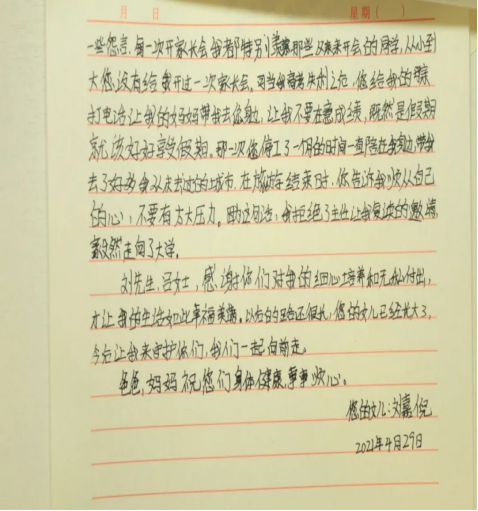 月 日 星期( )
一些怨言,每一次开家长会我都特别羡慕那些父母来开会的同学,从小到
大您没有给我开过一次家长会。可当我高考失利之后,您给我的妈妈
打电话让我的妈妈带我去您身边,让我不要在意成绩,既然是假期
就该好好享受假期。那一次您停工了一个月的时间一直陪在我身边,带我
去了好多我从未去过的城市。在旅游结束时,你告诉我顺从自己
的心,不要有太大压力。因为这句话,我拒绝了主任让我复读的邀请,
毅然走向了大学。
刘先生,吕女士,感谢你们对我的细心培养和无私付出,
才让我的生活如此幸福美满。以后的路还很长,您的女儿已经长大了,
今后让我来守护你们,我们一起向前走。
爸爸,妈妈祝您们身体健康,事事顺心。
您的女儿:刘嘉倪
2021年4月29日